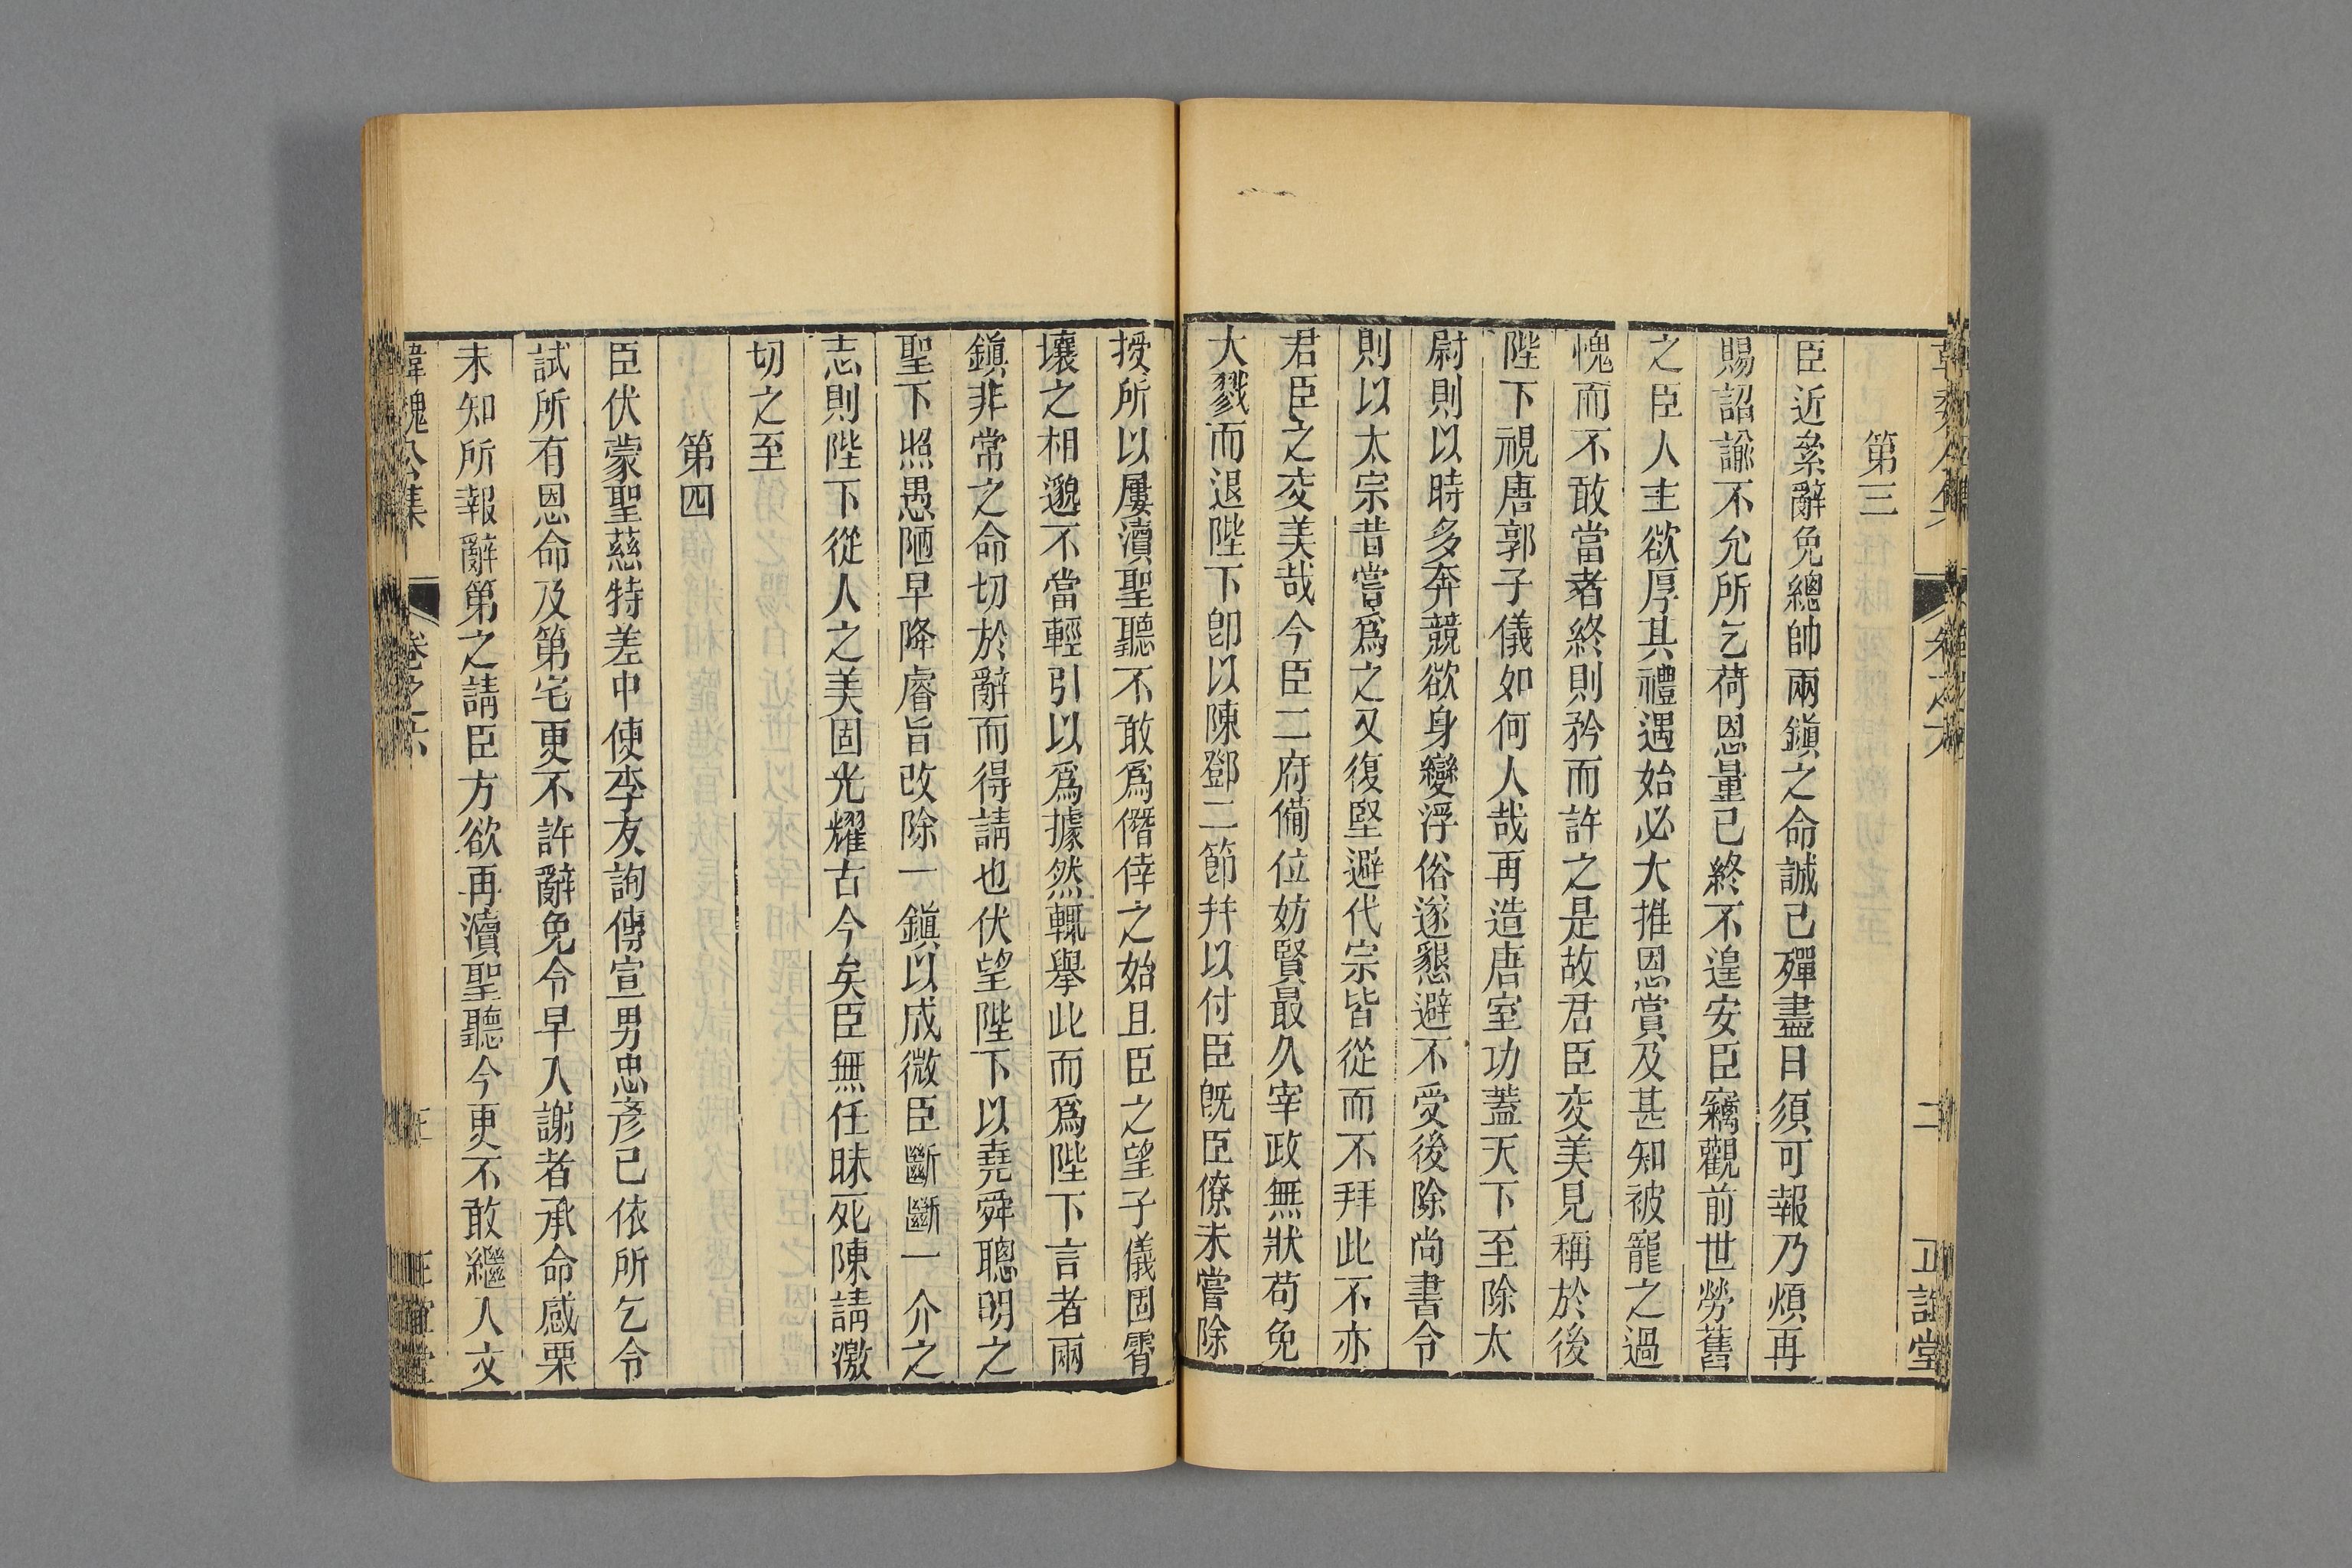 第三
臣近絫辭免總帥兩鎭之命誠已殫盡日須可報乃煩再
賜詔諭不允所乞荷恩量已終不遑安臣竊觀前世勞舊
之臣人主欲厚其禮遇始必大推恩賞及甚知被寵之過
愧而不敢當者終則矜而許之是故君臣交美見稱於後
陛下視唐郭子儀如何人哉再造唐室功蓋天下至除太
尉則以時多奔競欲身變浮俗遂懇避不受後除尚書令
則以太宗昔嘗爲之又復堅避代宗皆從而不拜此不亦
君臣之交美哉今臣二府備位妨賢最久宰政無狀苟免
大戮而退陛下卽以陳鄧二節幷以付臣旣臣僚未嘗除
授所以屢瀆聖聽不敢爲僭倖之始且臣之望子儀固霄
壤之相邈不當輕引以爲據然輒舉此而爲陛下言者兩
鎭非常之命切於辭而得請也伏望陛下以堯舜聰明之
聖下照愚陋早降睿旨改除一鎭以成微臣斷斷一介之
志則陛下從人之美固光耀古今矣臣無任昧死陳請激
切之至
第四
臣伏蒙聖慈特差中使李友詢傳宣男忠彥已依所乞令
試所有恩命及第宅更不許辭免令早入謝者承命感栗
未知所報辭第之請臣方欲再瀆聖聽今更不敢繼入文
韓魏公集
卷之六
二
正誼堂